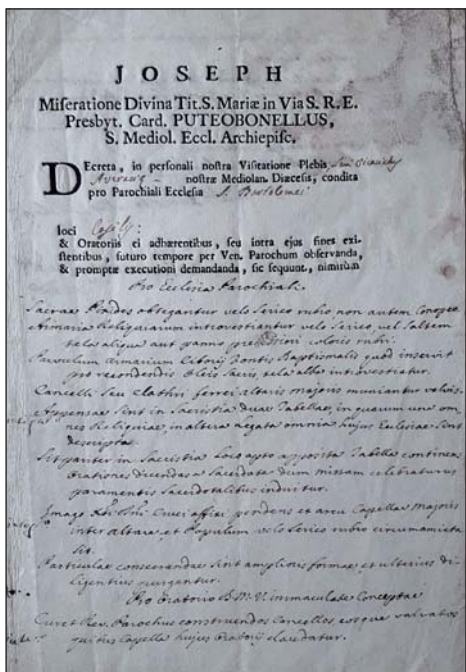 JOSEPH
Miseratione Divina Tit. S. Mariæ in Via S. R. E.
Presbyt. Card. PUTEOBONELLUS,
S. Mediol. Eccl. Archiepisc.
DEcreta, in personali nostra Visitatione Plebis
nostræ Mediolan. Diœcesis, condita
pro Parochiali Ecclesia S. Bartolomei
loci
& Oratoriis ei adhærentibus, seu intra ejus fines exi-
stentibus, futuro tempore per Ven. Parochum observanda,
& promptæ executioni demandanda, sic sequunt, nimirùm
Pro Ecclesia Parochiali.
Sacrae obtegantur velo serico rubro non autem Conopeo
Armaria Reliquiarum introvestiantur velo serico, vel saltem
tela aliqua aut panno coloris rubri.
Parvulum Armarium Ciborij Fontis Baptismalis quod inservit
pro recondendis Oleis Sacris, tela alba introvestiatur.
Cancelli seu Clathri ferrei altaris majoris muniantur valvis.
Appensae sint in Sacristia duae Tabellae, in quarum una om-
nes Reliquiae, in altera Legata omnia hujus Ecclesiae sint
descripta.
Sit pariter in Sacristia loco apto apposita Tabella continens
Orationes dicendas a Sacerdote dum missam celebraturus
paramentis Sacerdotalibus induitur.
Imago pendens ex arcu Capellae Majoris
inter altare, et Populum velo serico rubro circumamicta
sit.
Particulae consecrandae sint amplioris formae et ulterius di-
ligentius purgentur.
Pro Oratorio B. M. V. immaculate Conceptae
Curet Rev. Parochus construendos Cancellos eosque valvatos
quibus Capella hujus Oratorij claudatur.